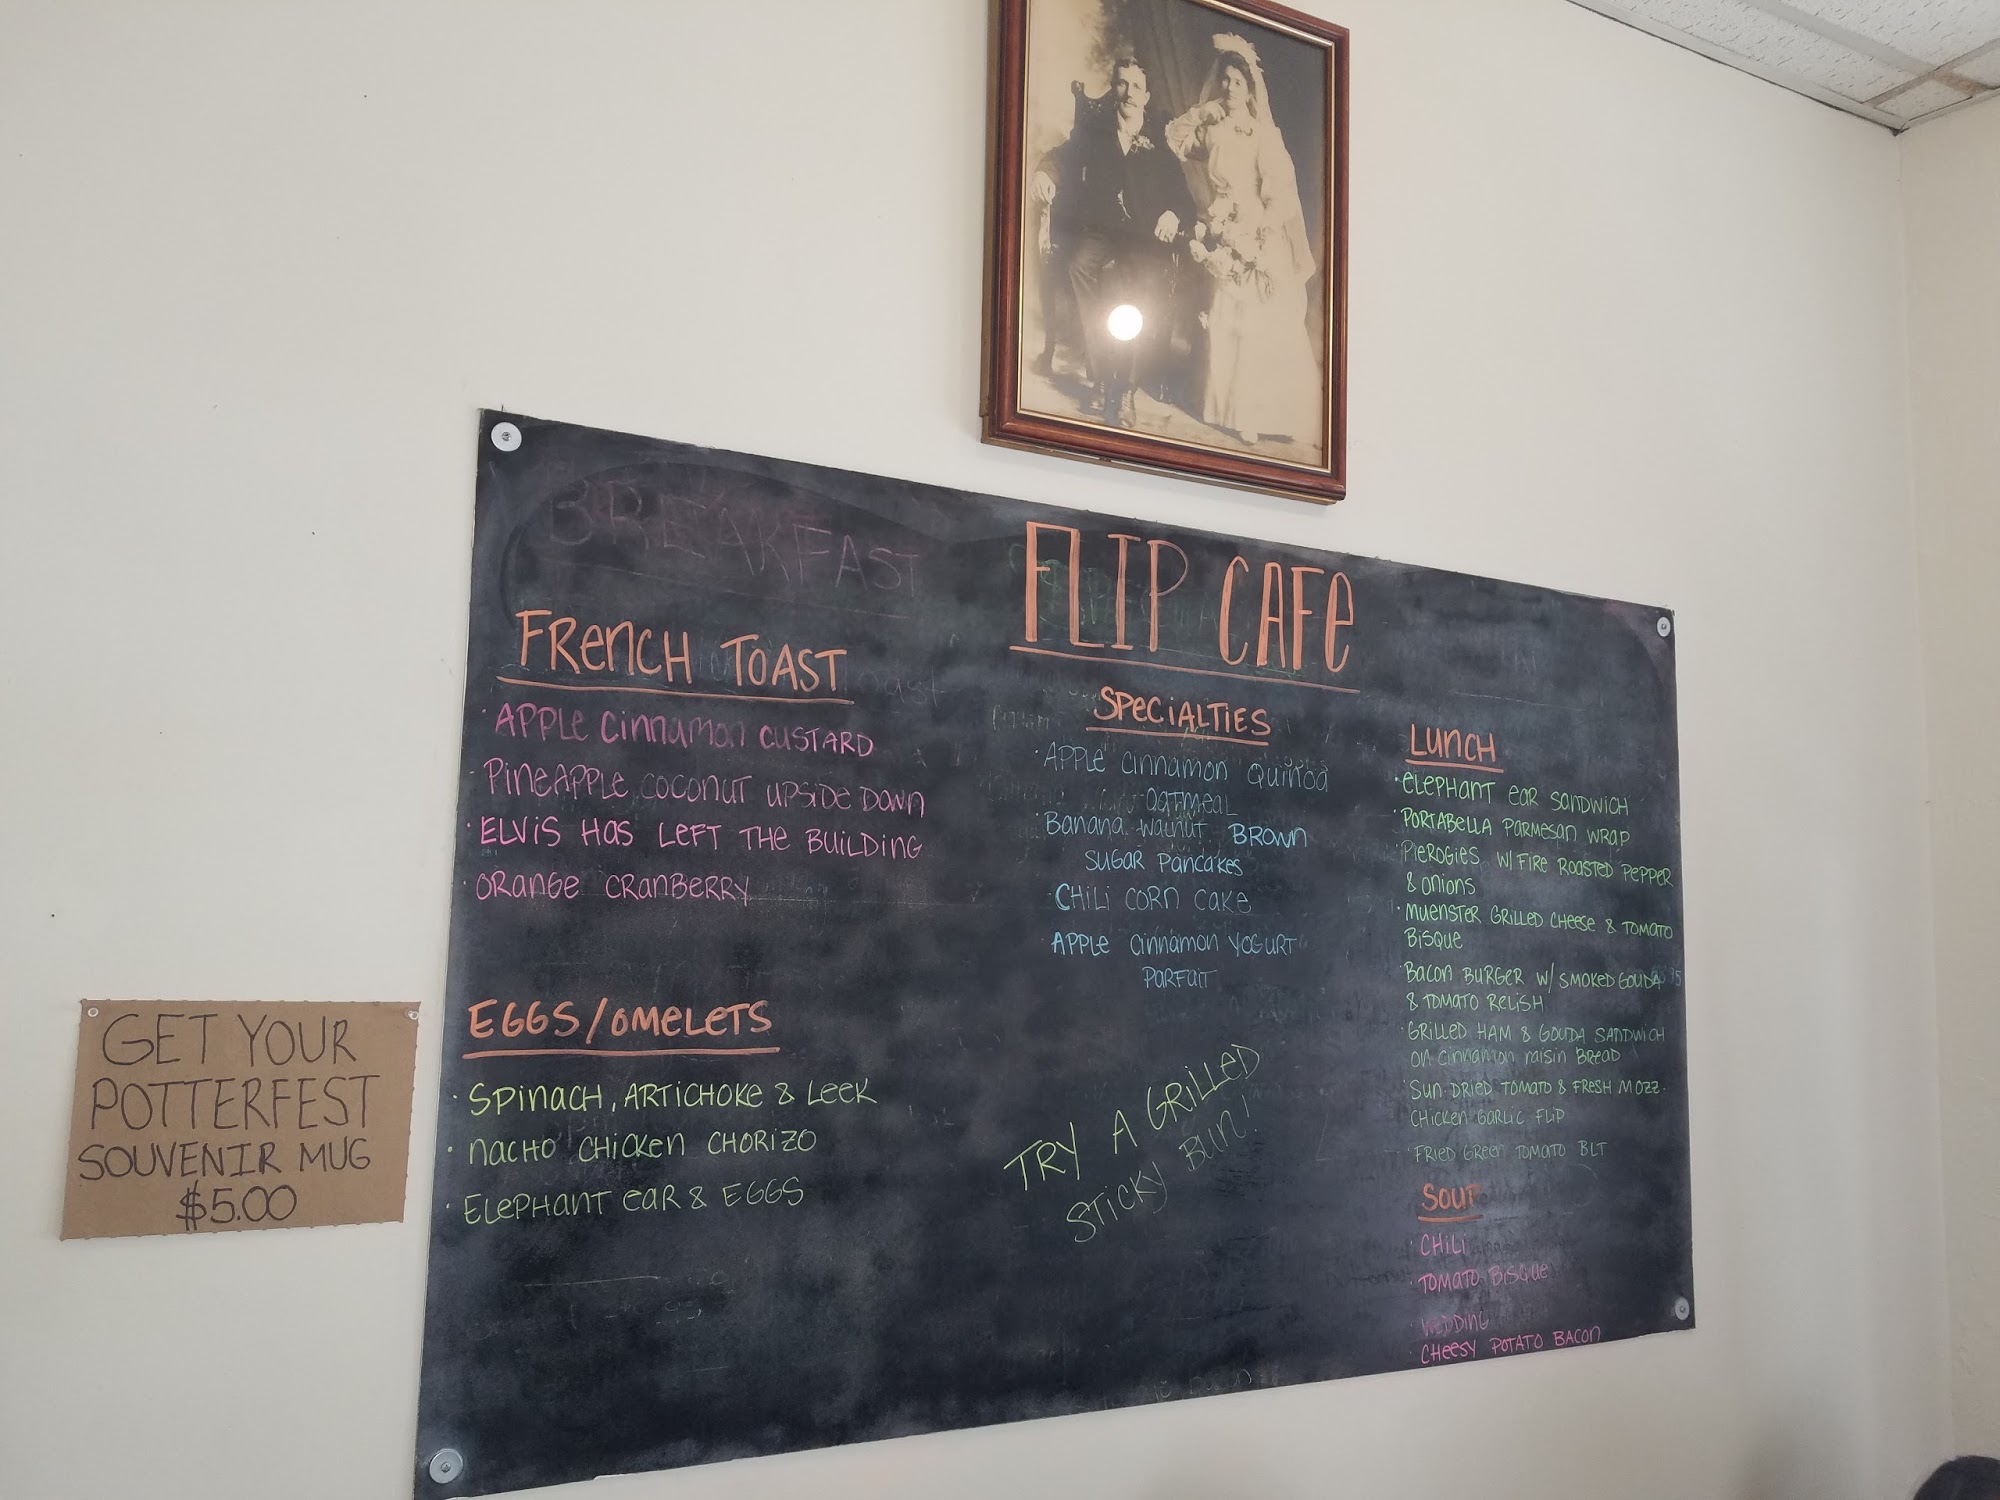 BREAKFAST
FLIP CAFE
FRENCH TOAST
· APPLE CINNAMON CUSTARD
· PINEAPPLE COCONUT UPSIDE DOWN
· ELVIS HAS LEFT THE BUILDING
· ORANGE CRANBERRY
EGGS/OMELETS
· SPINACH, ARTICHOKE & LEEK
· NACHO CHICKEN CHORIZO
· ELEPHANT EAR & EGGS
SPECIALTIES
· APPLE CINNAMON QUINOA
OATMEAL
· BANANA WALNUT BROWN
SUGAR PANCAKES
· CHILI CORN CAKE
· APPLE CINNAMON YOGURT
PARFAIT
TRY A GRILLED
STICKY BUN!
LUNCH
· ELEPHANT EAR SANDWICH
· PORTABELLA PARMESAN WRAP
· PIEROGIES W/ FIRE ROASTED PEPPER
& ONIONS
· MUENSTER GRILLED CHEESE & TOMATO
BISQUE
· BACON BURGER W/ SMOKED GOUDA
& TOMATO RELISH
· GRILLED HAM & GOUDA SANDWICH
ON CINNAMON RAISIN BREAD
· SUN DRIED TOMATO & FRESH MOZZ.
CHICKEN GARLIC FLIP
· FRIED GREEN TOMATO BLT
SOUP
· CHILI
· TOMATO BISQUE
· WEDDING
· CHEESY POTATO BACON
GET YOUR
POTTERFEST
SOUVENIR MUG
$5.00